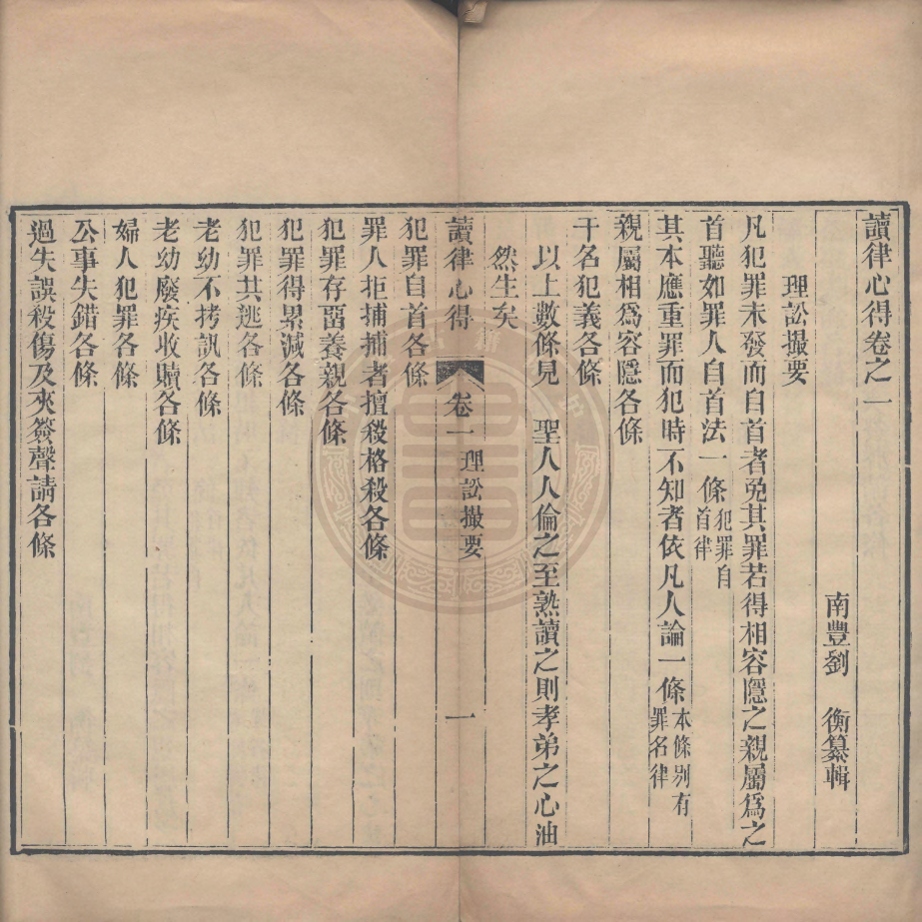 讀律心得卷之一
南豐劉 衡纂輯
理訟撮要
凡犯罪未發而自首者免其罪若得相容隱之親屬爲之
首聽如罪人自首法一條犯罪自首律
其本應重罪而犯時不知者依凡人論一條本條别有罪名律
親屬相爲容隱各條
干名犯義各條
以上數條見 聖人人倫之至熟讀之則孝弟之心油
然生矣
讀律心得 卷一 理訟撮要 一
犯罪自首各條
罪人拒捕捕者擅殺格殺各條
犯罪存畱養親各條
犯罪得累減各條
犯罪共逃各條
老幼不拷訊各條
老幼廢疾收贖各條
婦人犯罪各條
公事失錯各條
過失誤殺傷及夾簽聲請各條